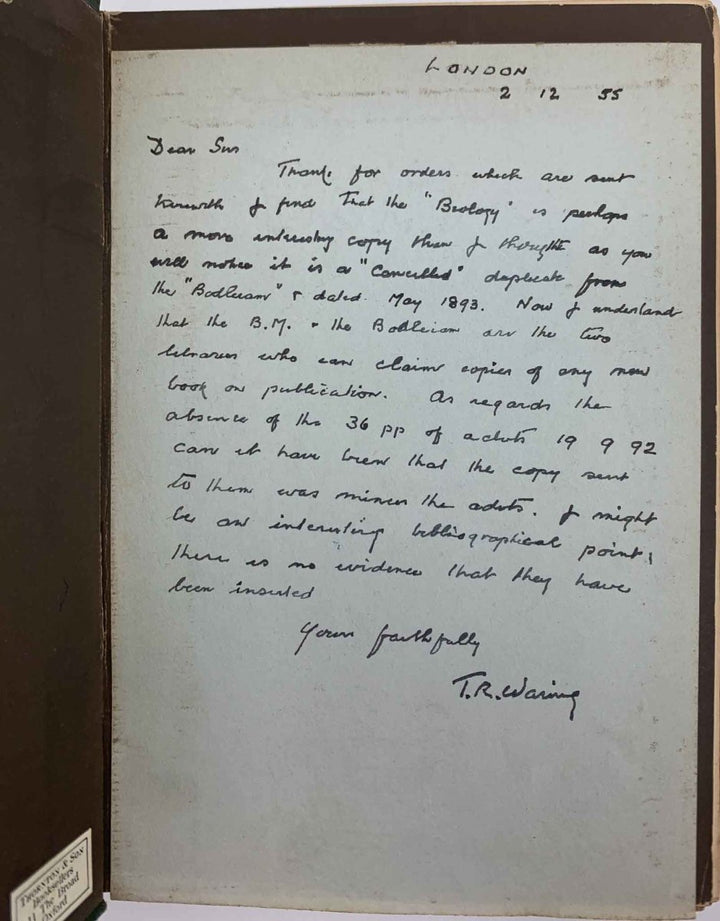 LONDON
2 12 55
Dear Sirs
Thanks for orders which are sent
herewith I find that the "Biology" is perhaps
a more interesting copy than I thought as you
will notice it is a "Cancelled" duplicate from
the "Bodleian" & dated May 1893. Now I understand
that the B.M. & the Bodleian are the two
libraries who can claim copies of any new
book on publication. As regards the
absence of the 36 pp of advts 19 9 92
can it have been that the copy sent
to them was minus the advts. I might
be an interesting bibliographical point;
there is no evidence that they have
been inserted
Yours faithfully
T.R. Waring
THORNTON & SON
Booksellers
11 The Broad
Oxford